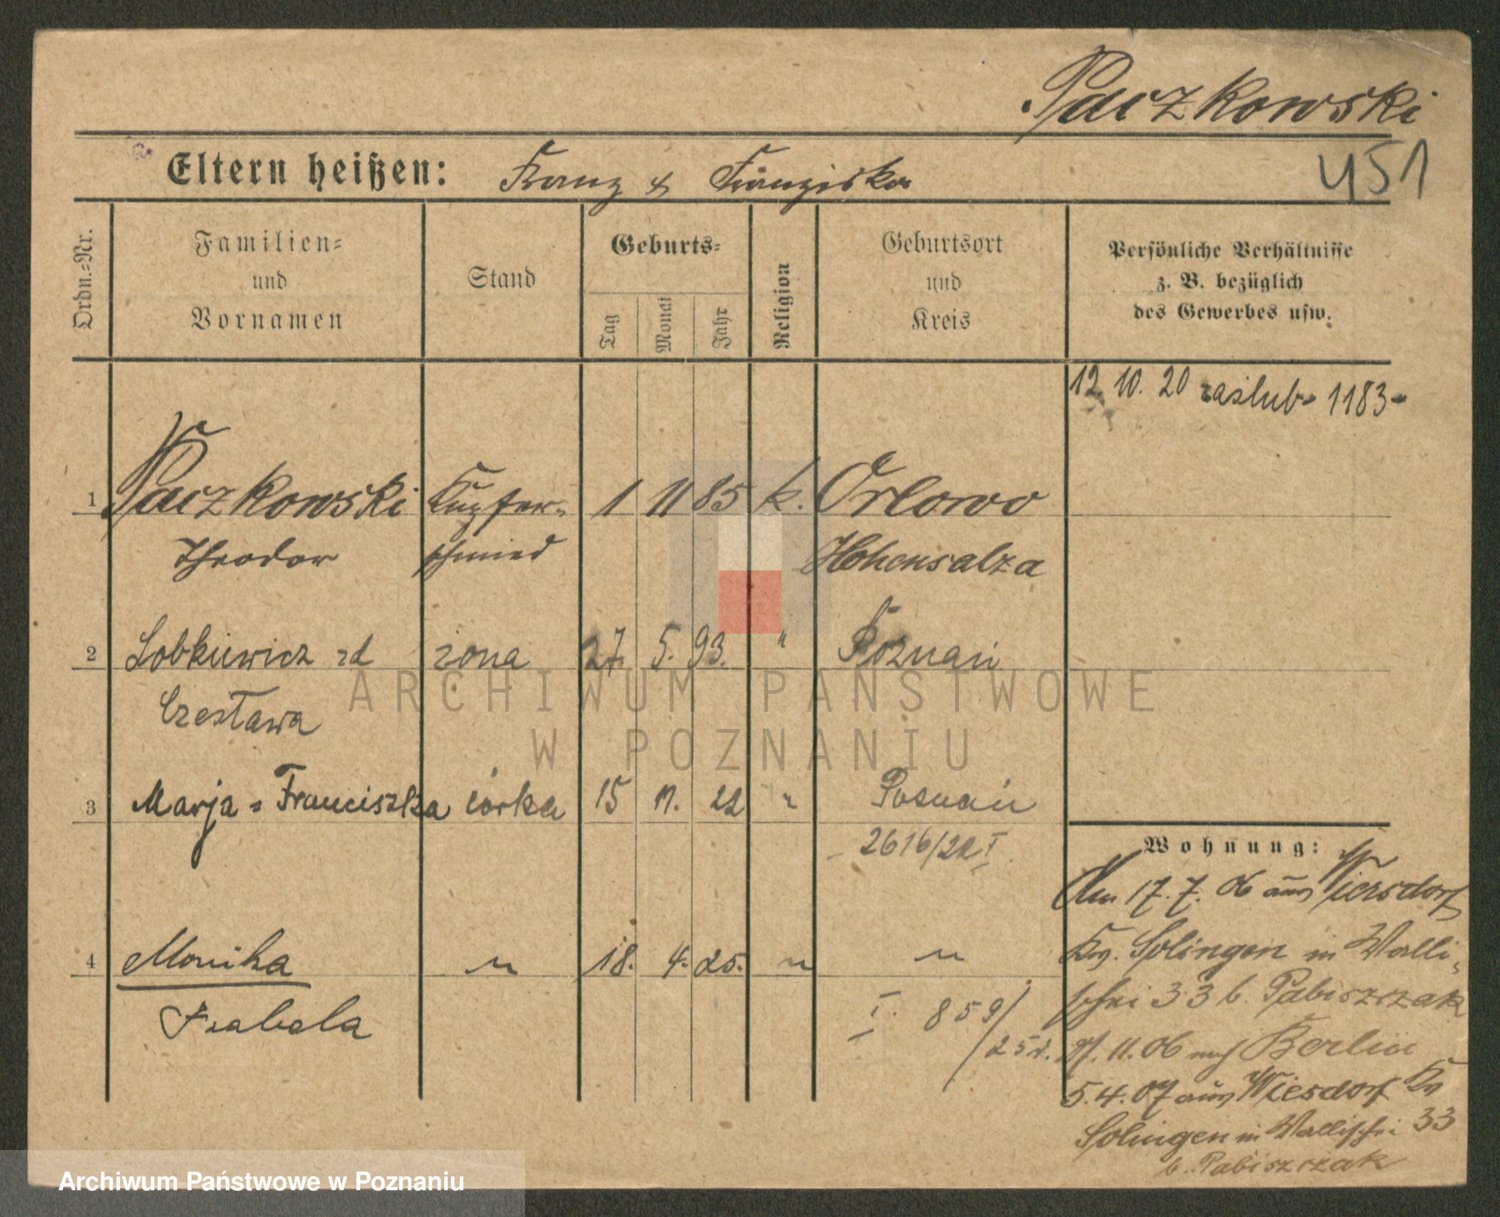 Paczkowski
Eltern heißen: Franz & Franziska
451
Ordn.=Nr.
Familien=
und
Vornamen
Stand
Geburts=
Tag
Monat
Jahr
Religion
Geburtsort
und
Kreis
Persönliche Verhältnisse
z. B. bezüglich
des Gewerbes usw.
12. 10. 20 zaślub. 1183
1 Paczkowski Kupfer= 1 11 85 k. Orlowo
Theodor schmied Hohensalza
2 Lobkiewicz zd żona 27. 5. 93. " Poznań
Czesława
3 Marja = Franciszka córka 15 11. 22 " Poznań
2616/22 I
4 Monika " 18. 4. 25. " "
Izabela I. 859/
25
Wohnung:
Am 17. 7. 06 aus Wiersdorf
Kr. Solingen in Walli=
schei 33 b. Pabiszczak
11. 06 nach Berlin
5. 4. 07 aus Wiesdorf Kr
Solingen in Wallischei 33
b. Pabiszczak
ARCHIWUM PAŃSTWOWE
W POZNANIU
Archiwum Państwowe w Poznaniu